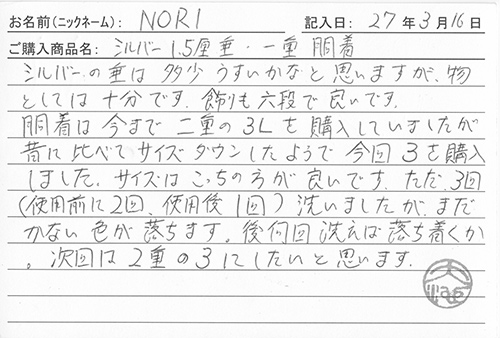 お名前(ニックネーム): NORI 記入日: 27年3月16日
ご購入商品名: シルバー1.5厘垂・一重 胴着
シルバーの垂は多少うすいかなと思いますが、物
としては十分です。飾りも六段で良いです。
胴着は今まで二重の3Lを購入していましたが
昔に比べてサイズダウンしたようで今回3を購入
しました。サイズはこっちの方が良いです。ただ、3回
(使用前に2回、使用後1回)洗いましたがまだ
かない色が落ちます。後何回洗えば落ち着くか
。次回は2重の3にしたいと思います。